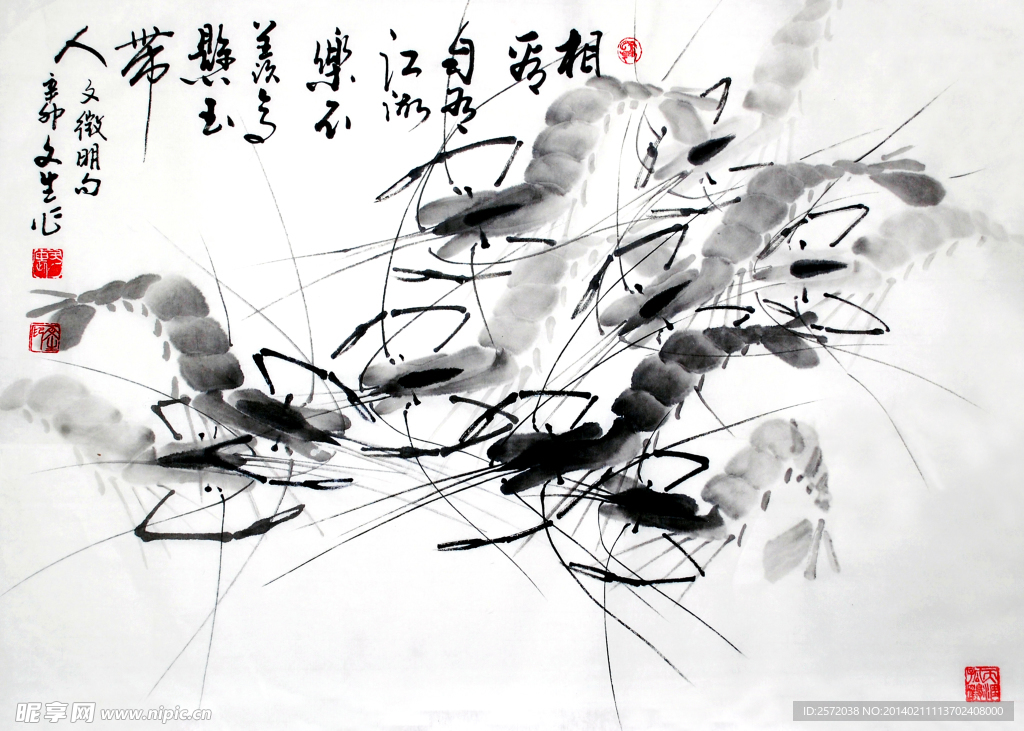 相
看
自有
江湖
樂不
羨高
懸玉
帶
人
文徵明句
辛卯文生作
昵享网 www.nipic.cn
ID:2572038 NO:20140211113702408000